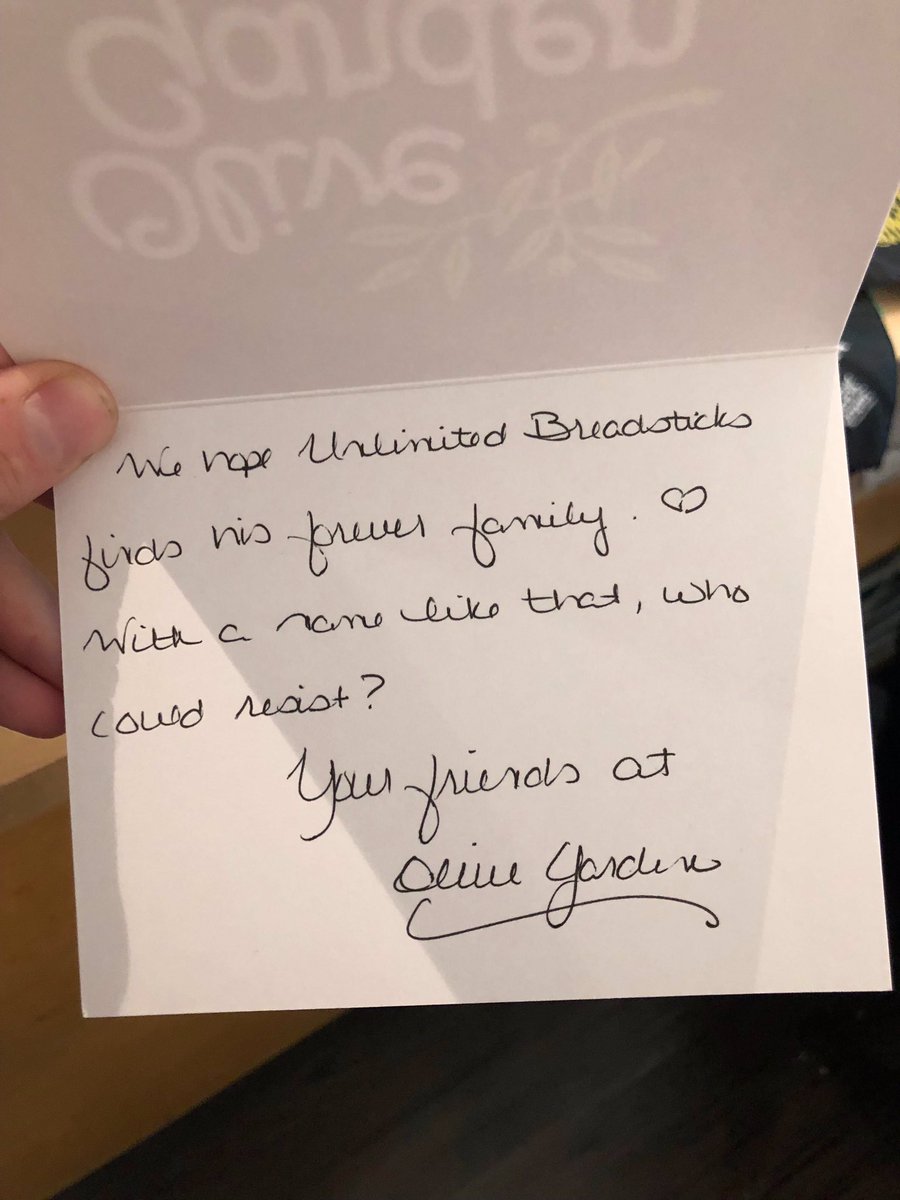 Olive
Garden
We hope Unlimited Breadsticks
finds his forever family. ♡
With a name like that, who
could resist?
Your friends at
Olive Garden